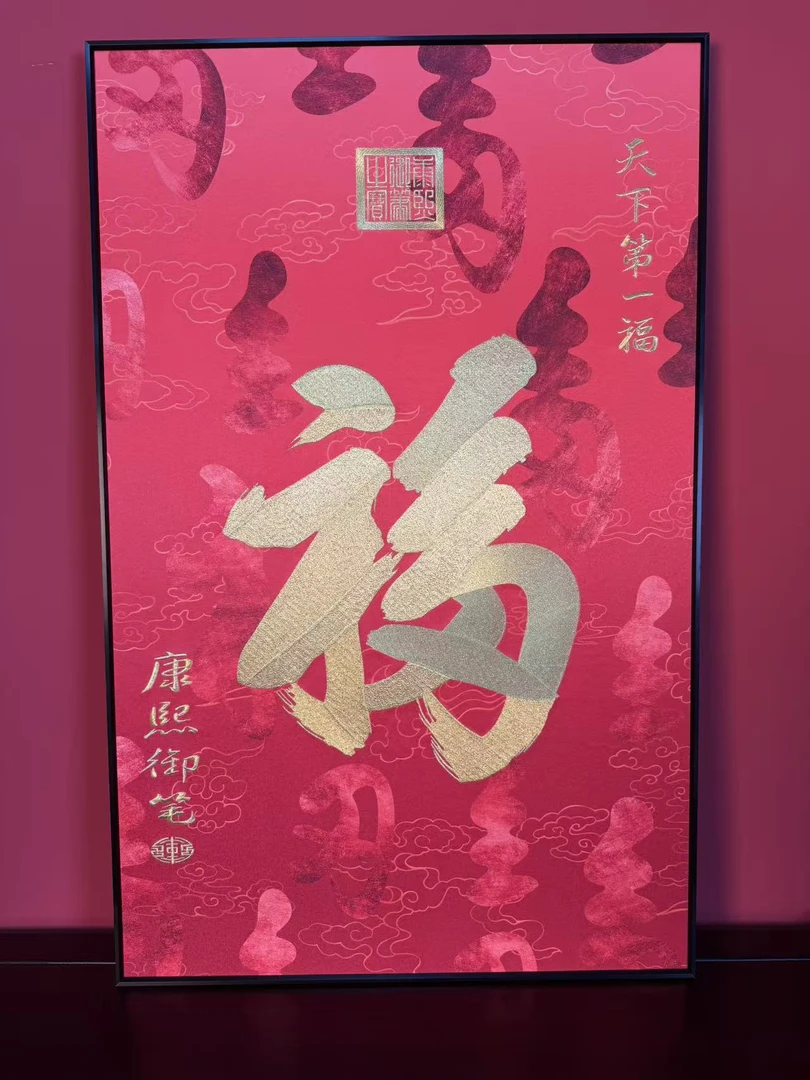 天下第一福
康熙御筆之寶
福
康熙御笔